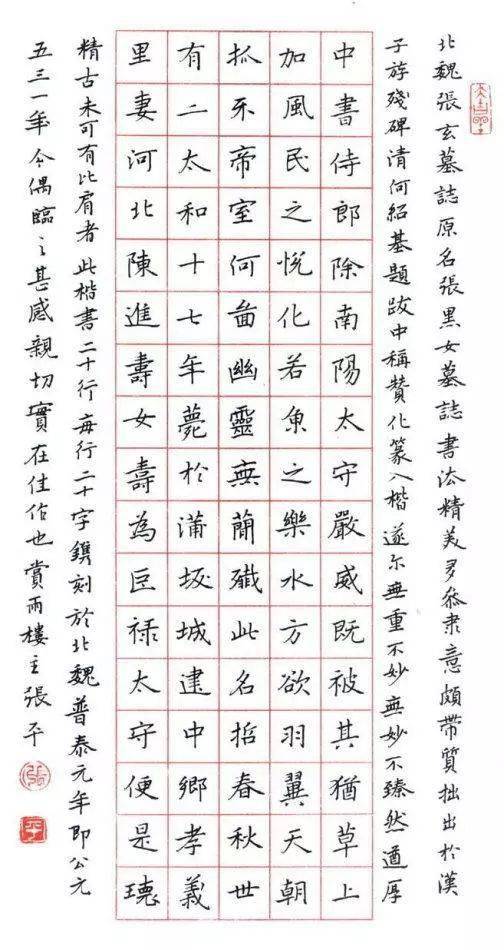 北魏張玄墓誌原名張黑女墓誌書法精美多叅隶意頗帶質拙出於漢
子游殘碑清何紹基題跋中稱贊化篆入楷遂尔無重不妙無妙不臻然遒厚
中書侍郎除南陽太守嚴威既被其猶草上
加風民之悅化若魚之樂水方欲羽翼天朝
抓牙帝室何啚幽靈無簡殲此名哲春秋世
有二太和十七年薨於蒲坂城建中鄉孝義
里妻河北陳進壽女壽為巨禄太守便是瓌
精古未可有比肩者此楷書二十行每行二十字鐫刻於北魏普泰元年即公元
五三一年今偶臨之甚感親切實在佳作也賞雨樓主張平
張
平